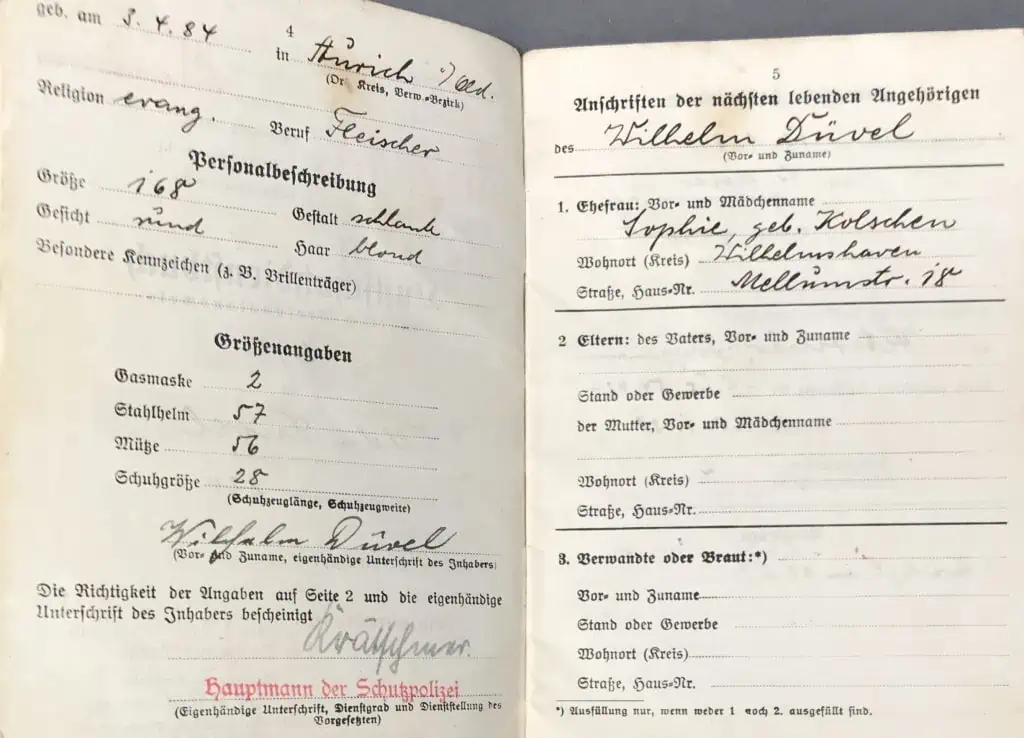 geb. am 3. 4. 84
4
in Aurich
(Ort, Kreis, Verw.-Bezirk)
Religion evang. Beruf Fleischer
Personalbeschreibung
Größe 168 Gestalt schlank
Gesicht rund Haar blond
Besondere Kennzeichen (z. B. Brillenträger)
Größenangaben
Gasmaske 2
Stahlhelm 57
Mütze 56
Schuhgröße 28
(Schuhzeuglänge, Schuhzeugweite)
Wilhelm Düvel
(Vor- und Zuname, eigenhändige Unterschrift des Inhabers)
Die Richtigkeit der Angaben auf Seite 2 und die eigenhändige
Unterschrift des Inhabers bescheinigt
Krätschmer.
Hauptmann der Schutzpolizei
(Eigenhändige Unterschrift, Dienstgrad und Dienststellung des
Vorgesetzten)
5
Anschriften der nächsten lebenden Angehörigen
des Wilhelm Düvel
(Vor- und Zuname)
1. Ehefrau: Vor- und Mädchenname
Sophie, geb. Kolschen
Wohnort (Kreis) Wilhelmshaven
Straße, Haus-Nr. Mellumstr. 18
2 Eltern: des Vaters, Vor- und Zuname
Stand oder Gewerbe
der Mutter, Vor- und Mädchenname
Wohnort (Kreis)
Straße, Haus-Nr.
3. Verwandte oder Braut:*)
Vor- und Zuname
Stand oder Gewerbe
Wohnort (Kreis)
Straße, Haus-Nr.
*) Ausfüllung nur, wenn weder 1 noch 2. ausgefüllt sind.